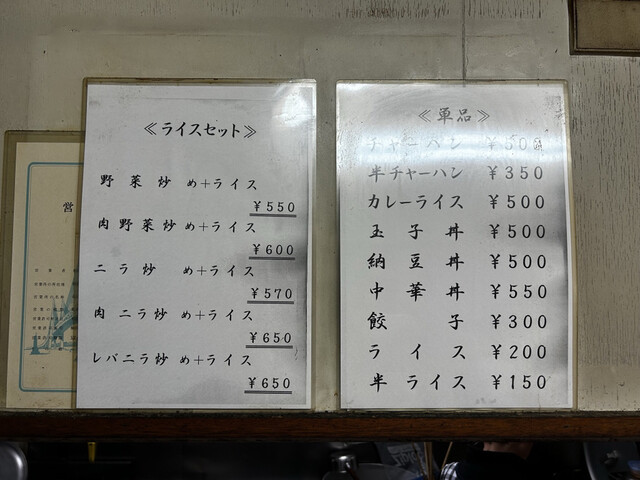 ≪ライスセット≫
野菜炒め+ライス
¥550
肉野菜炒め+ライス
¥600
ニラ炒め+ライス
¥570
肉ニラ炒め+ライス
¥650
レバニラ炒め+ライス
¥650
≪単品≫
チャーハン ¥500
半チャーハン ¥350
カレーライス ¥500
玉子丼 ¥500
納豆丼 ¥500
中華丼 ¥550
餃子 ¥300
ライス ¥200
半ライス ¥150
営